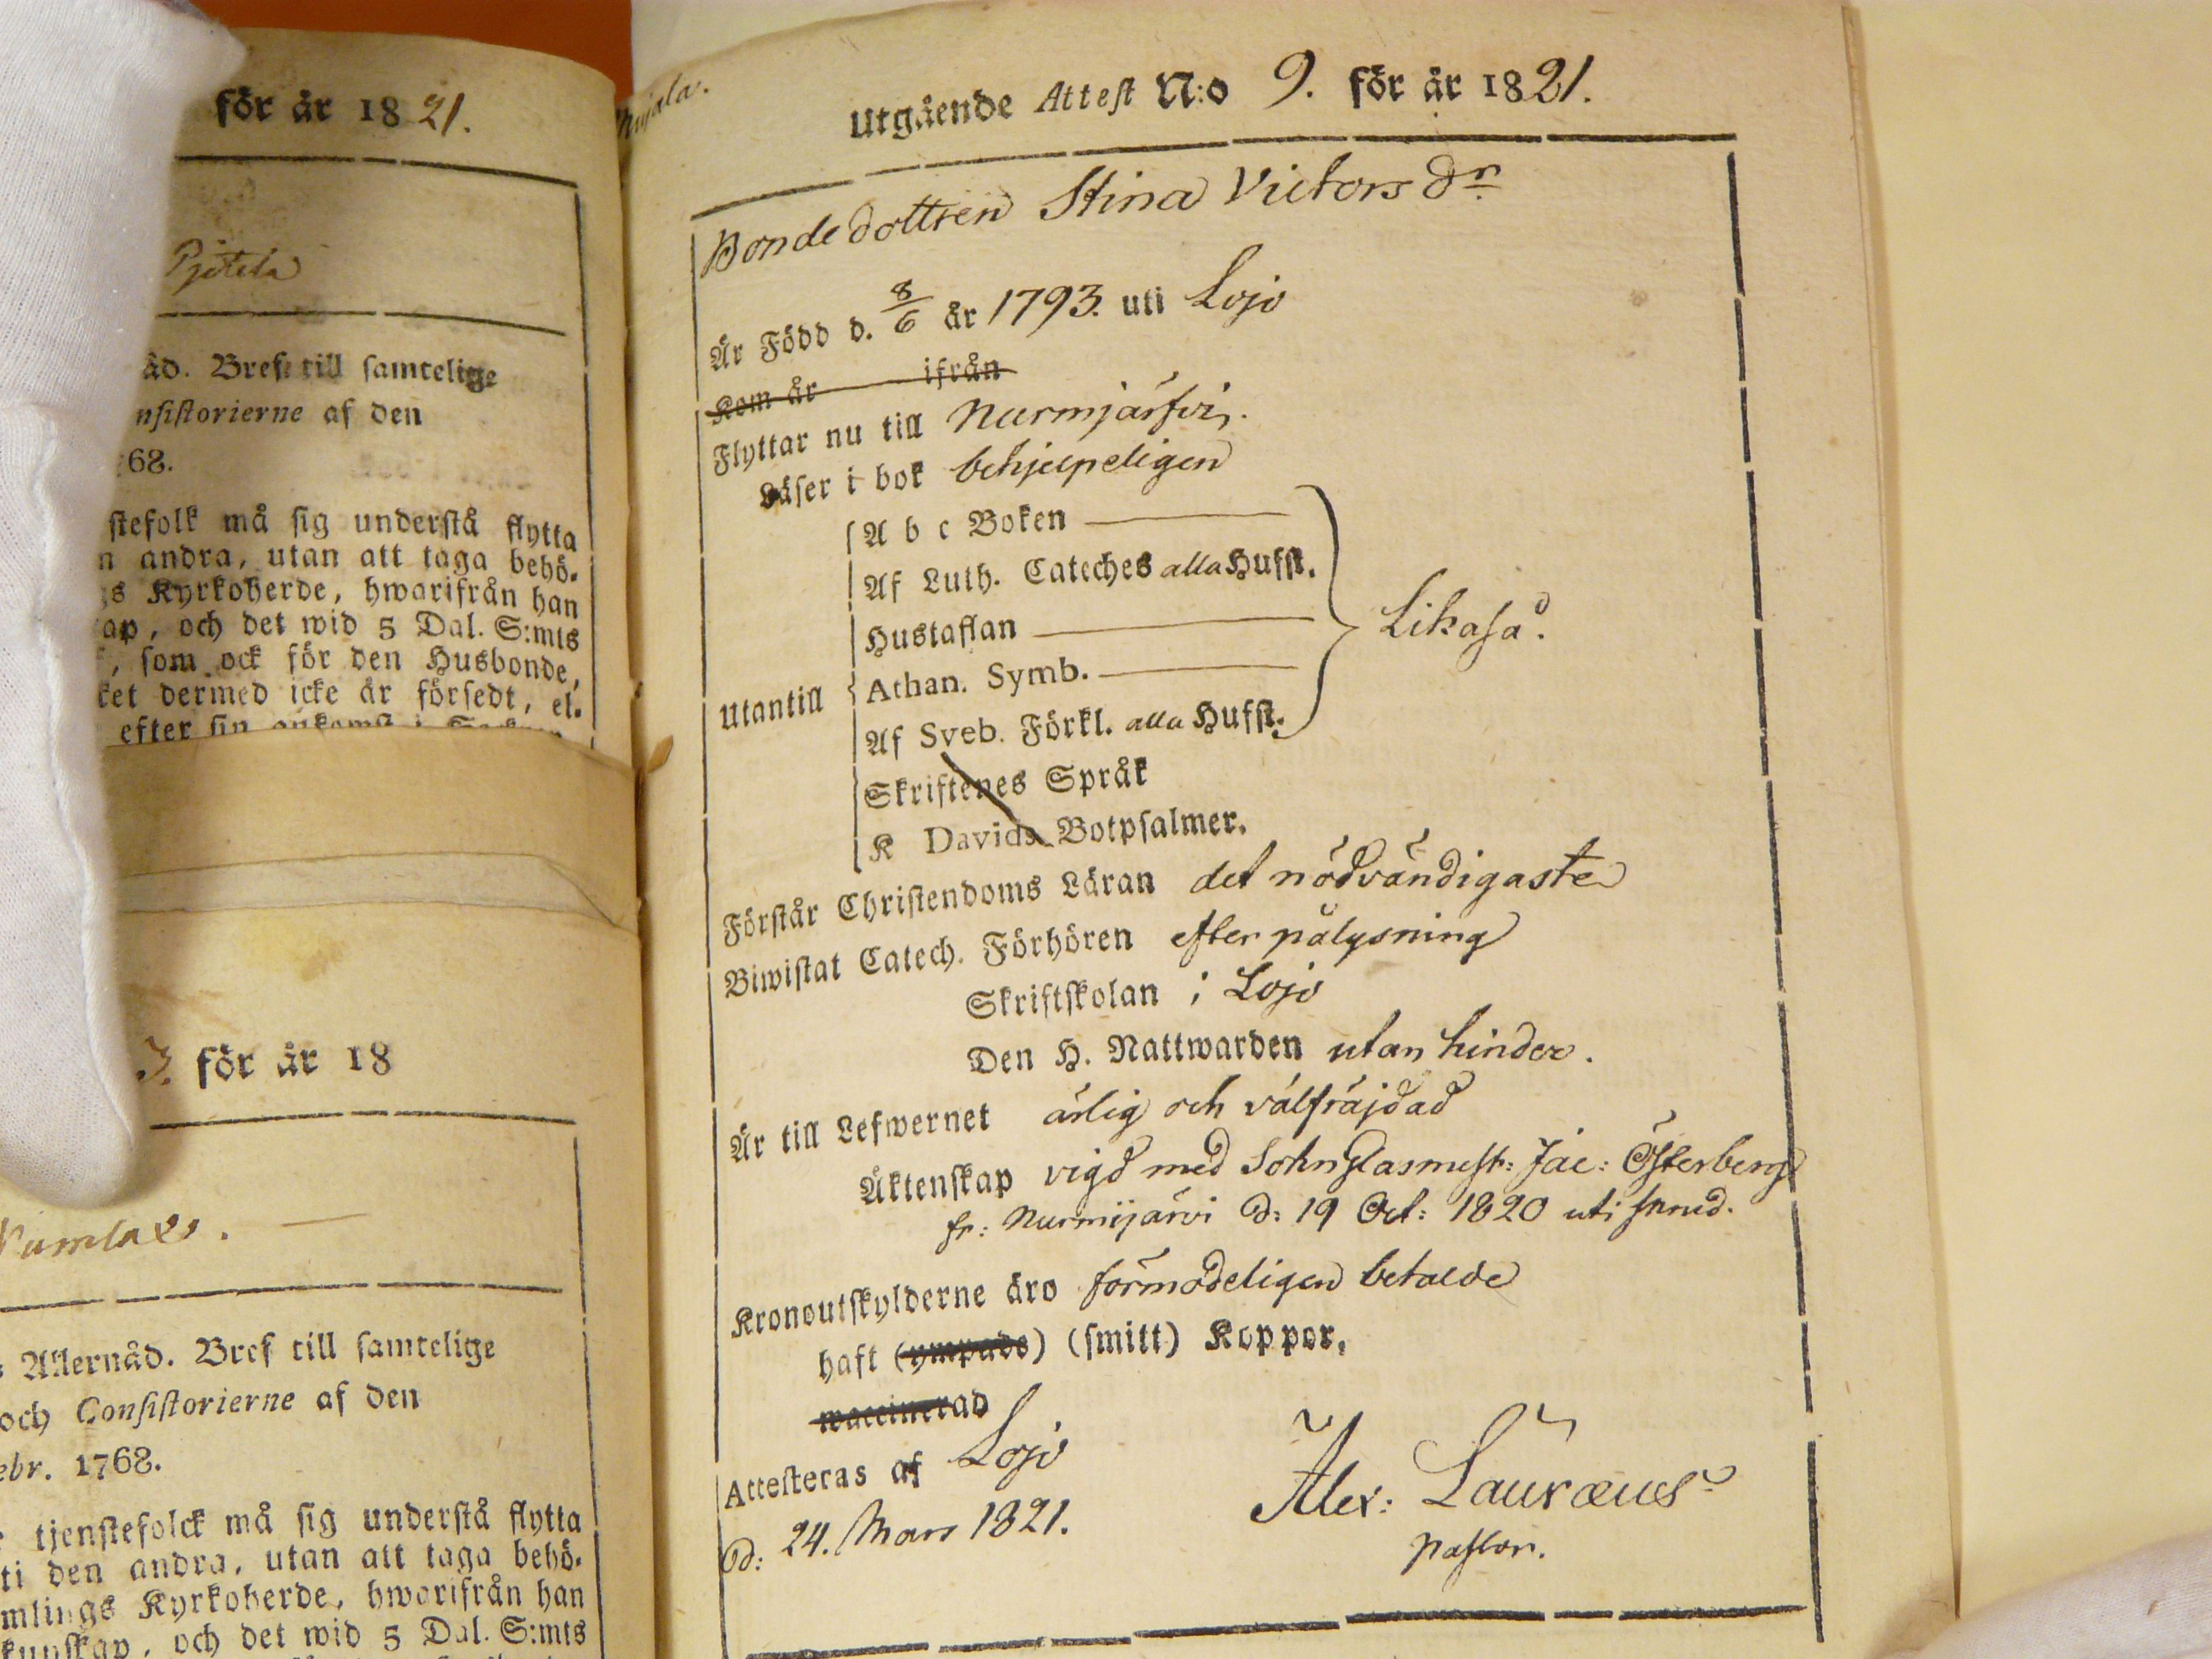 för år 1821.
Pjetela
åd. Bref till samtelige
nsistorierne af den
68.
stefolk må sig understå flytta
n andra, utan att taga behö-
gs Kyrkoherde, hwarifrån han
ap, och det wid 5 Dal. S:mts
, som ock för den Husbonde,
ket dermed icke är försedt, el-
efter sin ankomst i
3. för år 18
Numlax.
Allernåd. Bref till samtelige
och Consistorierne af den
ebr. 1768.
tjenstefolck må sig understå flytta
ti den andra, utan att taga behö-
mlings Kyrkoherde, hwarifrån han
kunskap, och det wid 5 Dal. S:mts
Utgående Attest N:o 9. för år 1821.
Bondedottren Stina Victorsdr
Är Född d. 8/6 år 1793. uti Lojo
Kom år ifrån
Flyttar nu till Nurmijärfvi.
Läser i bok behjelpeligen
A b c Boken
Af Luth. Cateches alla Hufst.
Hustaflan
Likaså.
Athan. Symb.
Utantill
Af Sveb. Förkl. alla Hufst.
Skriftenes Språk
K Davids Botpsalmer.
Förstår Christendoms Läran det nödvändigaste
Biwistat Catech. Förhören efter pålysning
Skriftskolan i Lojo
Den H. Nattwarden utan hinder.
Är till Lefwernet ärlig och välfräjdad
Äktenskap vigd med Sohn Glasmest: Jac: Österberg
fr: Nurmijärvi d: 19 Oct: 1820 uti
Kronoutskylderne äro förmodeligen betalde
haft (ympade) (smitt) Koppor.
waccinerad
Attesteras af Lojo
d: 24. Mars 1821.
Alex: Lauræus
pastor.